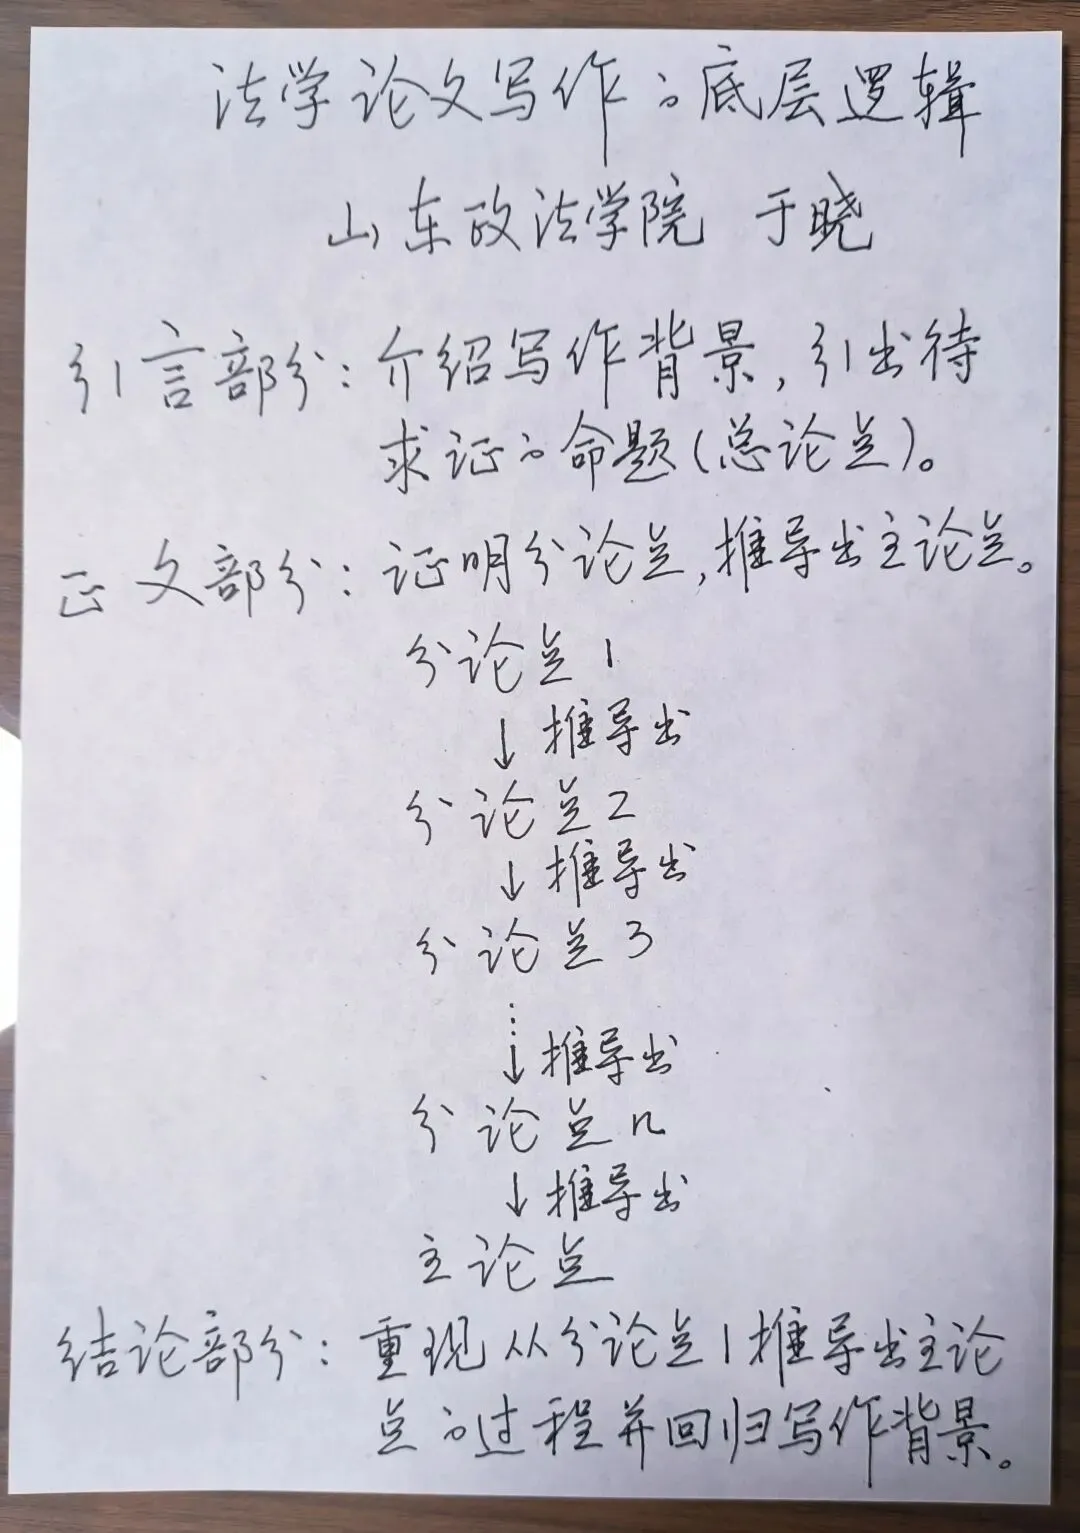 法学论文写作的底层逻辑
山东政法学院 于晓
引言部分：介绍写作背景，引出待
求证的命题（总论点）。
正文部分：证明分论点，推导出主论点。
分论点1
↓推导出
分论点2
↓推导出
分论点3
⋮
↓推导出
分论点n
↓推导出
主论点
结论部分：重现从分论点1推导出主论
点的过程并回归写作背景。